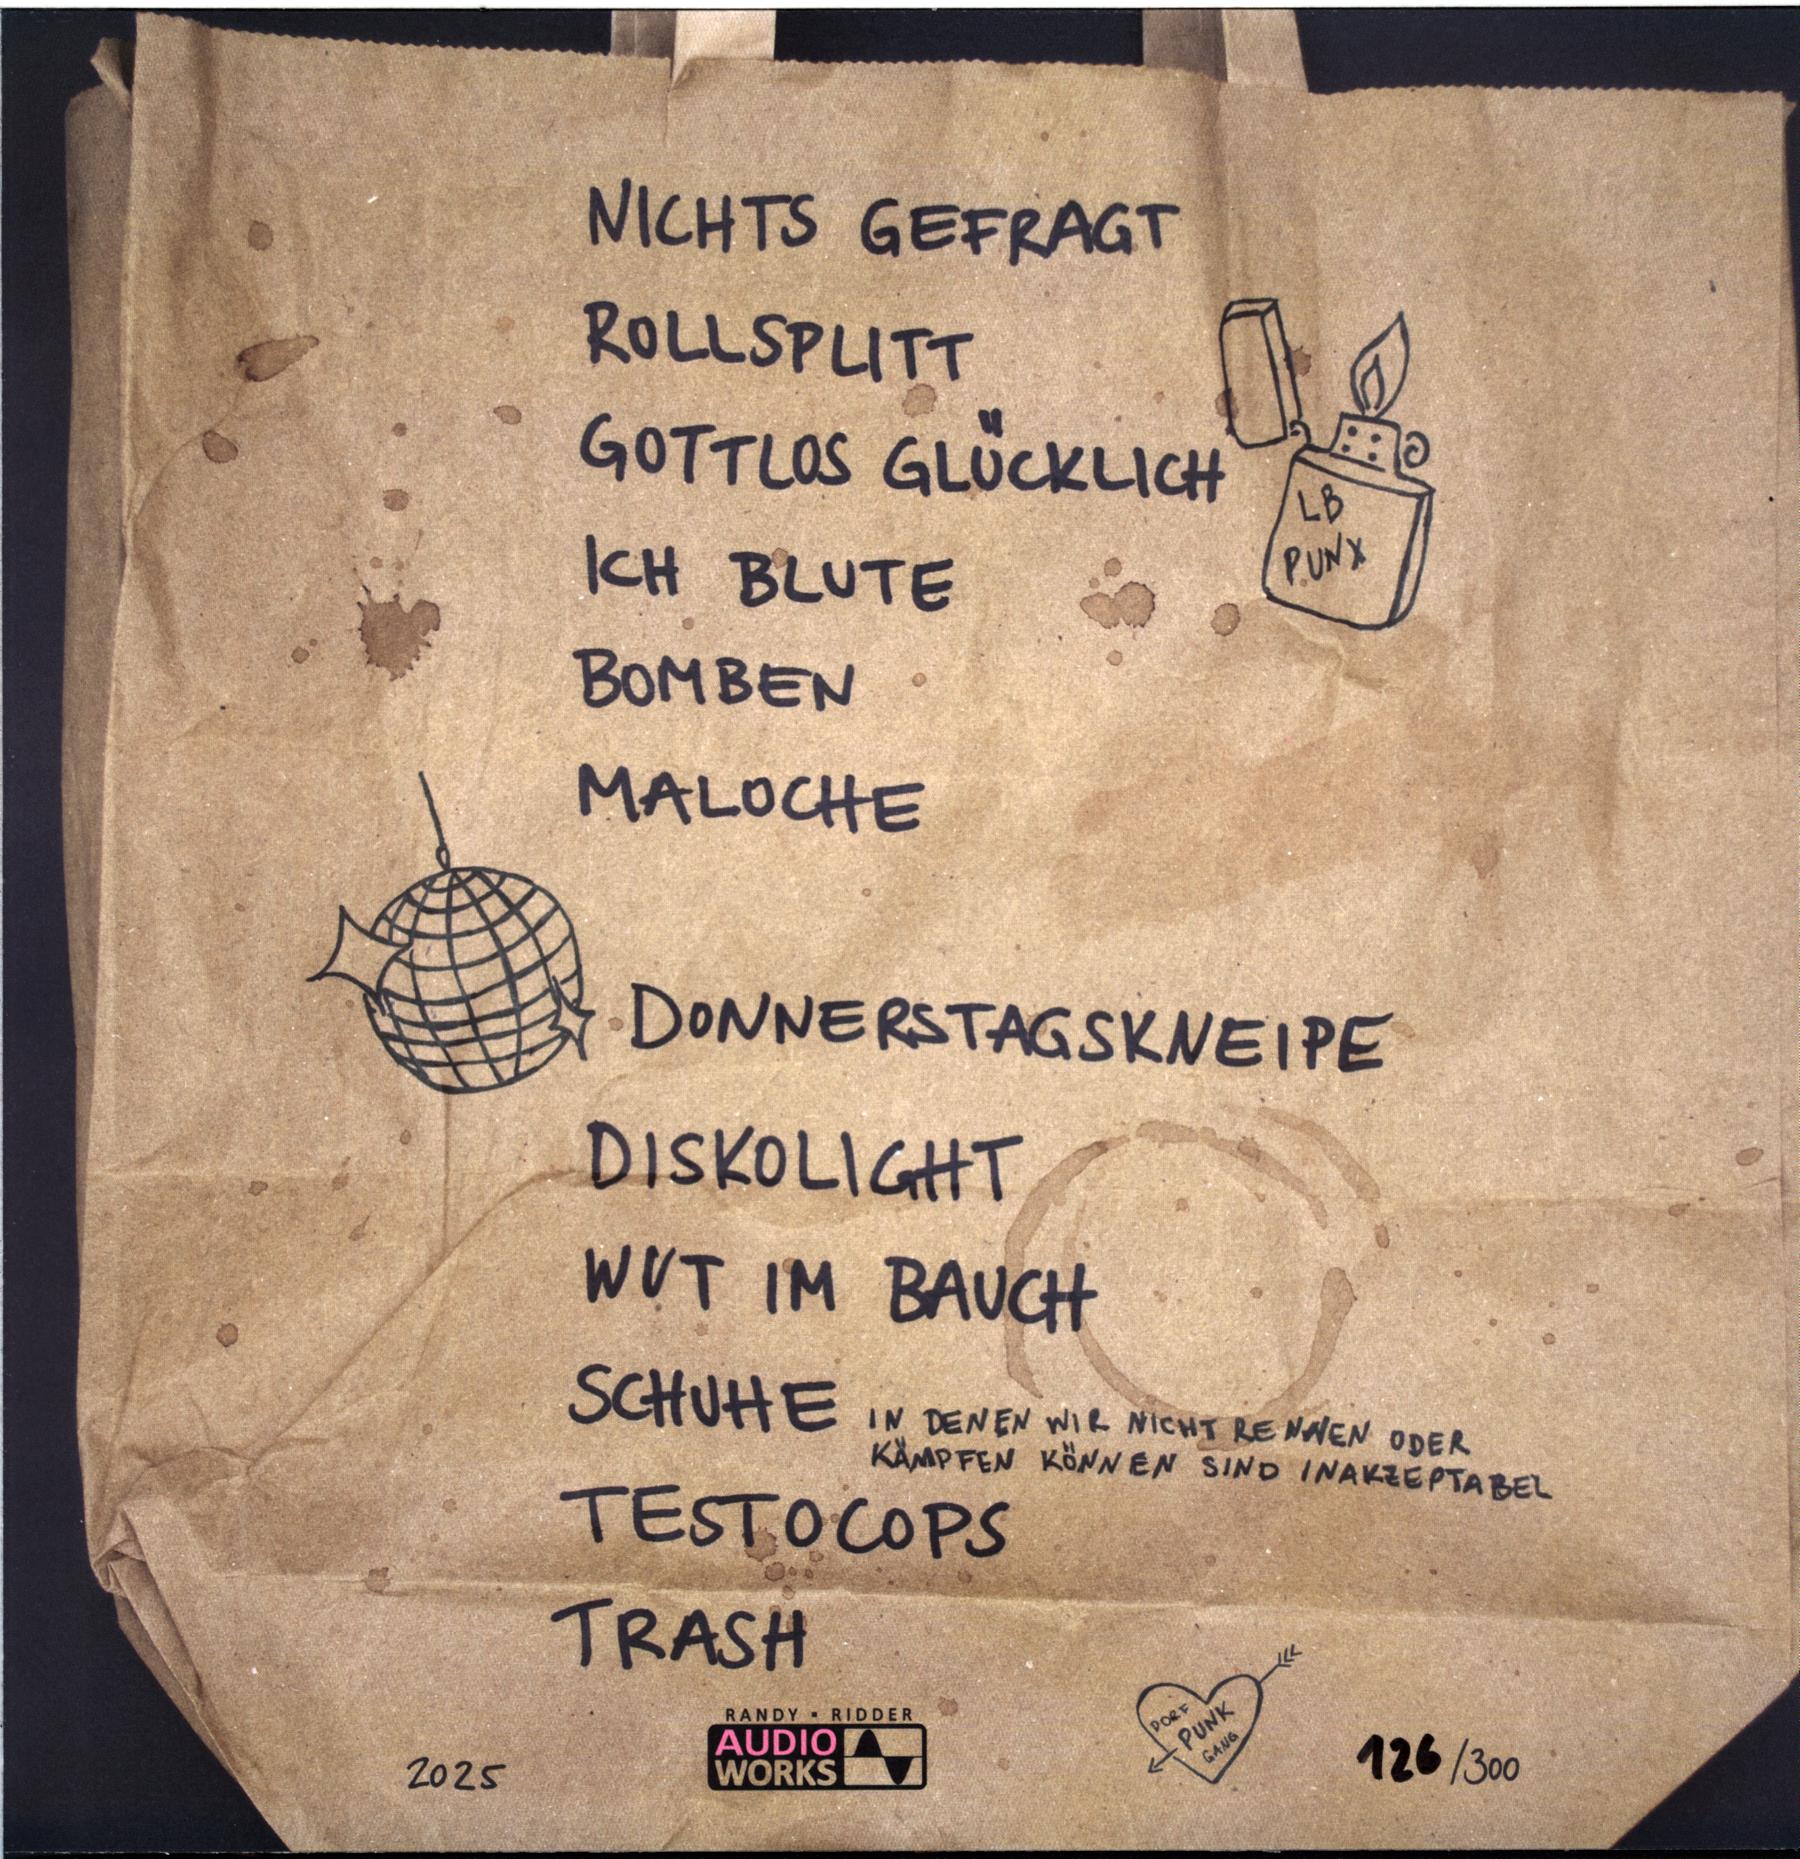 NICHTS GEFRAGT
ROLLSPLITT
GOTTLOS GLÜCKLICH
LB
PUNX
ICH BLUTE
BOMBEN
MALOCHE
DONNERSTAGSKNEIPE
DISKOLIGHT
WUT IM BAUCH
SCHUHE IN DENEN WIR NICHT RENNEN ODER
KÄMPFEN KÖNNEN SIND INAKZEPTABEL
TESTOCOPS
TRASH
2025
RANDY ▪ RIDDER
AUDIO
WORKS
DORF
PUNK
GANG
126/300